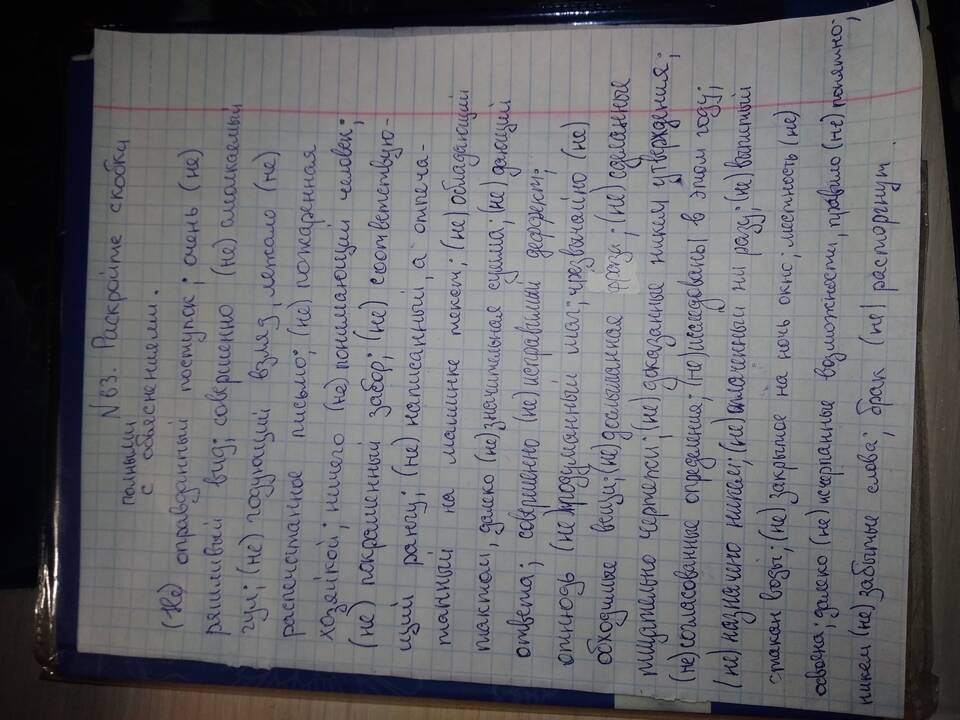 N 83. Раскройте скобки
полными
с объяснениями.
(Не) оправданный поступок; очень (не)
ряшливый вид; совершенно (не) смолкаемый
гул; (не) годующий взгляд, лежало (не)
распечатанное письмо; (не) пожаренная
хозяйкой; ничего (не) понимающий человек;
(не) покрашенный забор; (не) соответствую-
щий рангу; (не) написанный, а отпеча-
танный на машинке текст; (не) обладающий
тактом, далеко (не) значительная сумма; (не) дающий
ответа; совершенно (не) исправимый дефект;
отнюдь (не) продуманный шаг; чрезвычайно (не)
обходимые вещи; (не) дослышанная фраза; (не) сделанные
тщательно чертежи; (не) доказанные никем утверждения;
(не) согласованные определения; (не) исследованы в этом году;
(не) назначено никем; (не) оплаченный ни разу; (не) выпитый
стакан воды; (не) закрытое на ночь окно; местность (не)
освоена; далеко (не) исчерпанные возможности, правило (не) понятно;
никем (не) забытые слова; брак (не) расторгнут.